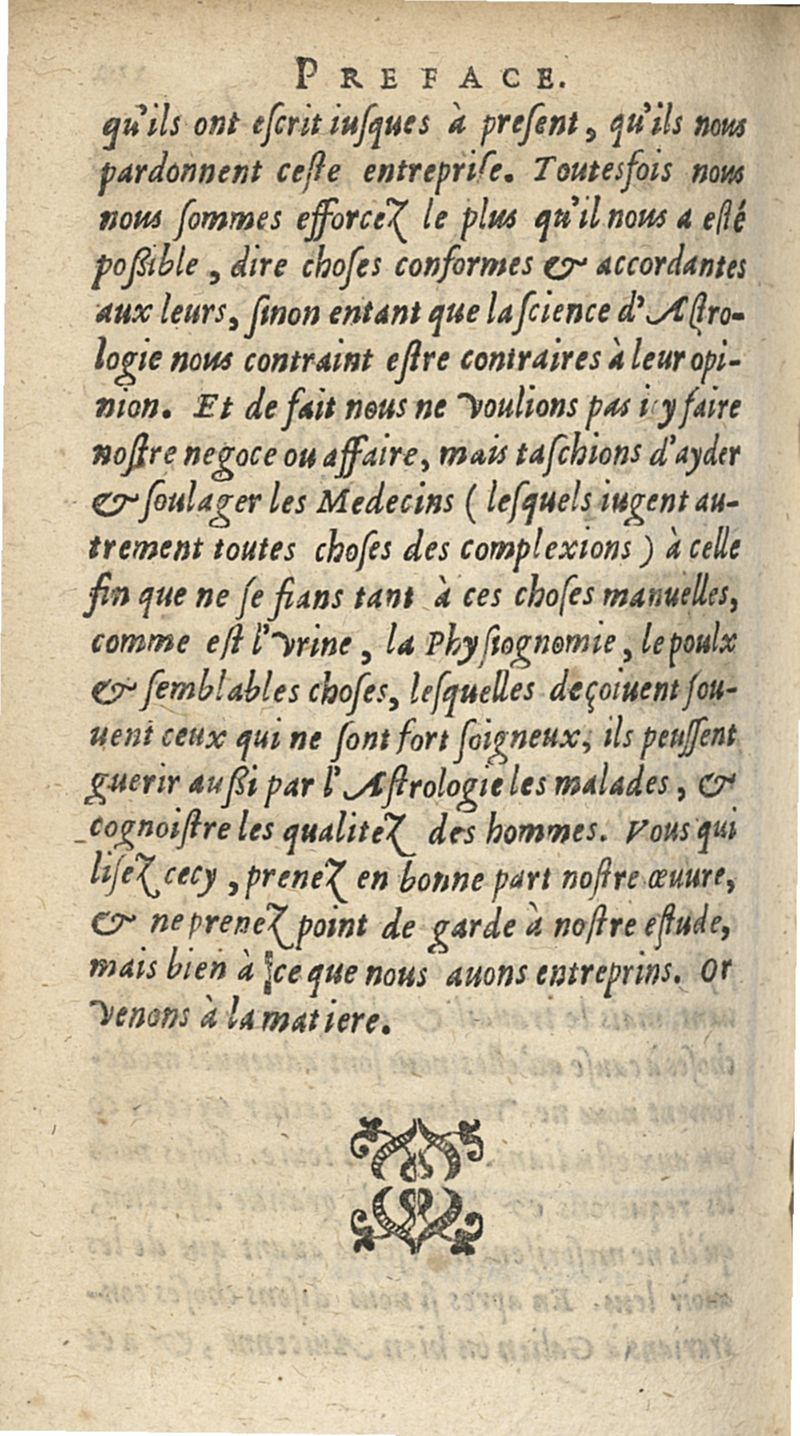 PREFACE.
qu'ils ont eſcrit iuſques à preſent, qu'ils nous
pardonnent ceſte entrepriſe. Toutesfois nous
nous ſommes efforcez le plus qu'il nous a eſté
poßible, dire choſes conformes & accordantes
aux leurs, ſinon entant que la ſcience d'Aſtro-
logie nous contraint eſtre contraires à leur opi-
nion. Et de fait nous ne voulions pas icy faire
noſtre negoce ou affaire, mais taſchions d'ayder
& ſoulager les Medecins (leſquels iugent au-
trement toutes choſes des complexions) à celle
fin que ne ſe fians tant à ces choſes manuelles,
comme eſt l'vrine, la Phyſiognomie, le poulx
& ſemblables choſes, leſquelles deçoiuent ſou-
uent ceux qui ne ſont fort ſoigneux, ils peuſſent
guerir außi par l'Aſtrologie les malades, &
cognoiſtre les qualitez des hommes. Vous qui
liſez cecy, prenez en bonne part noſtre œuure,
& ne prenez point de garde à noſtre eſtude,
mais bien à ce que nous auons entreprins. Or
venons à la matiere.